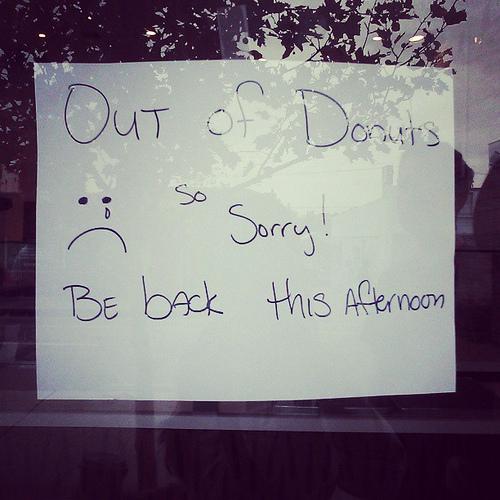 Out of Donuts
So Sorry!
Be back this Afternoon